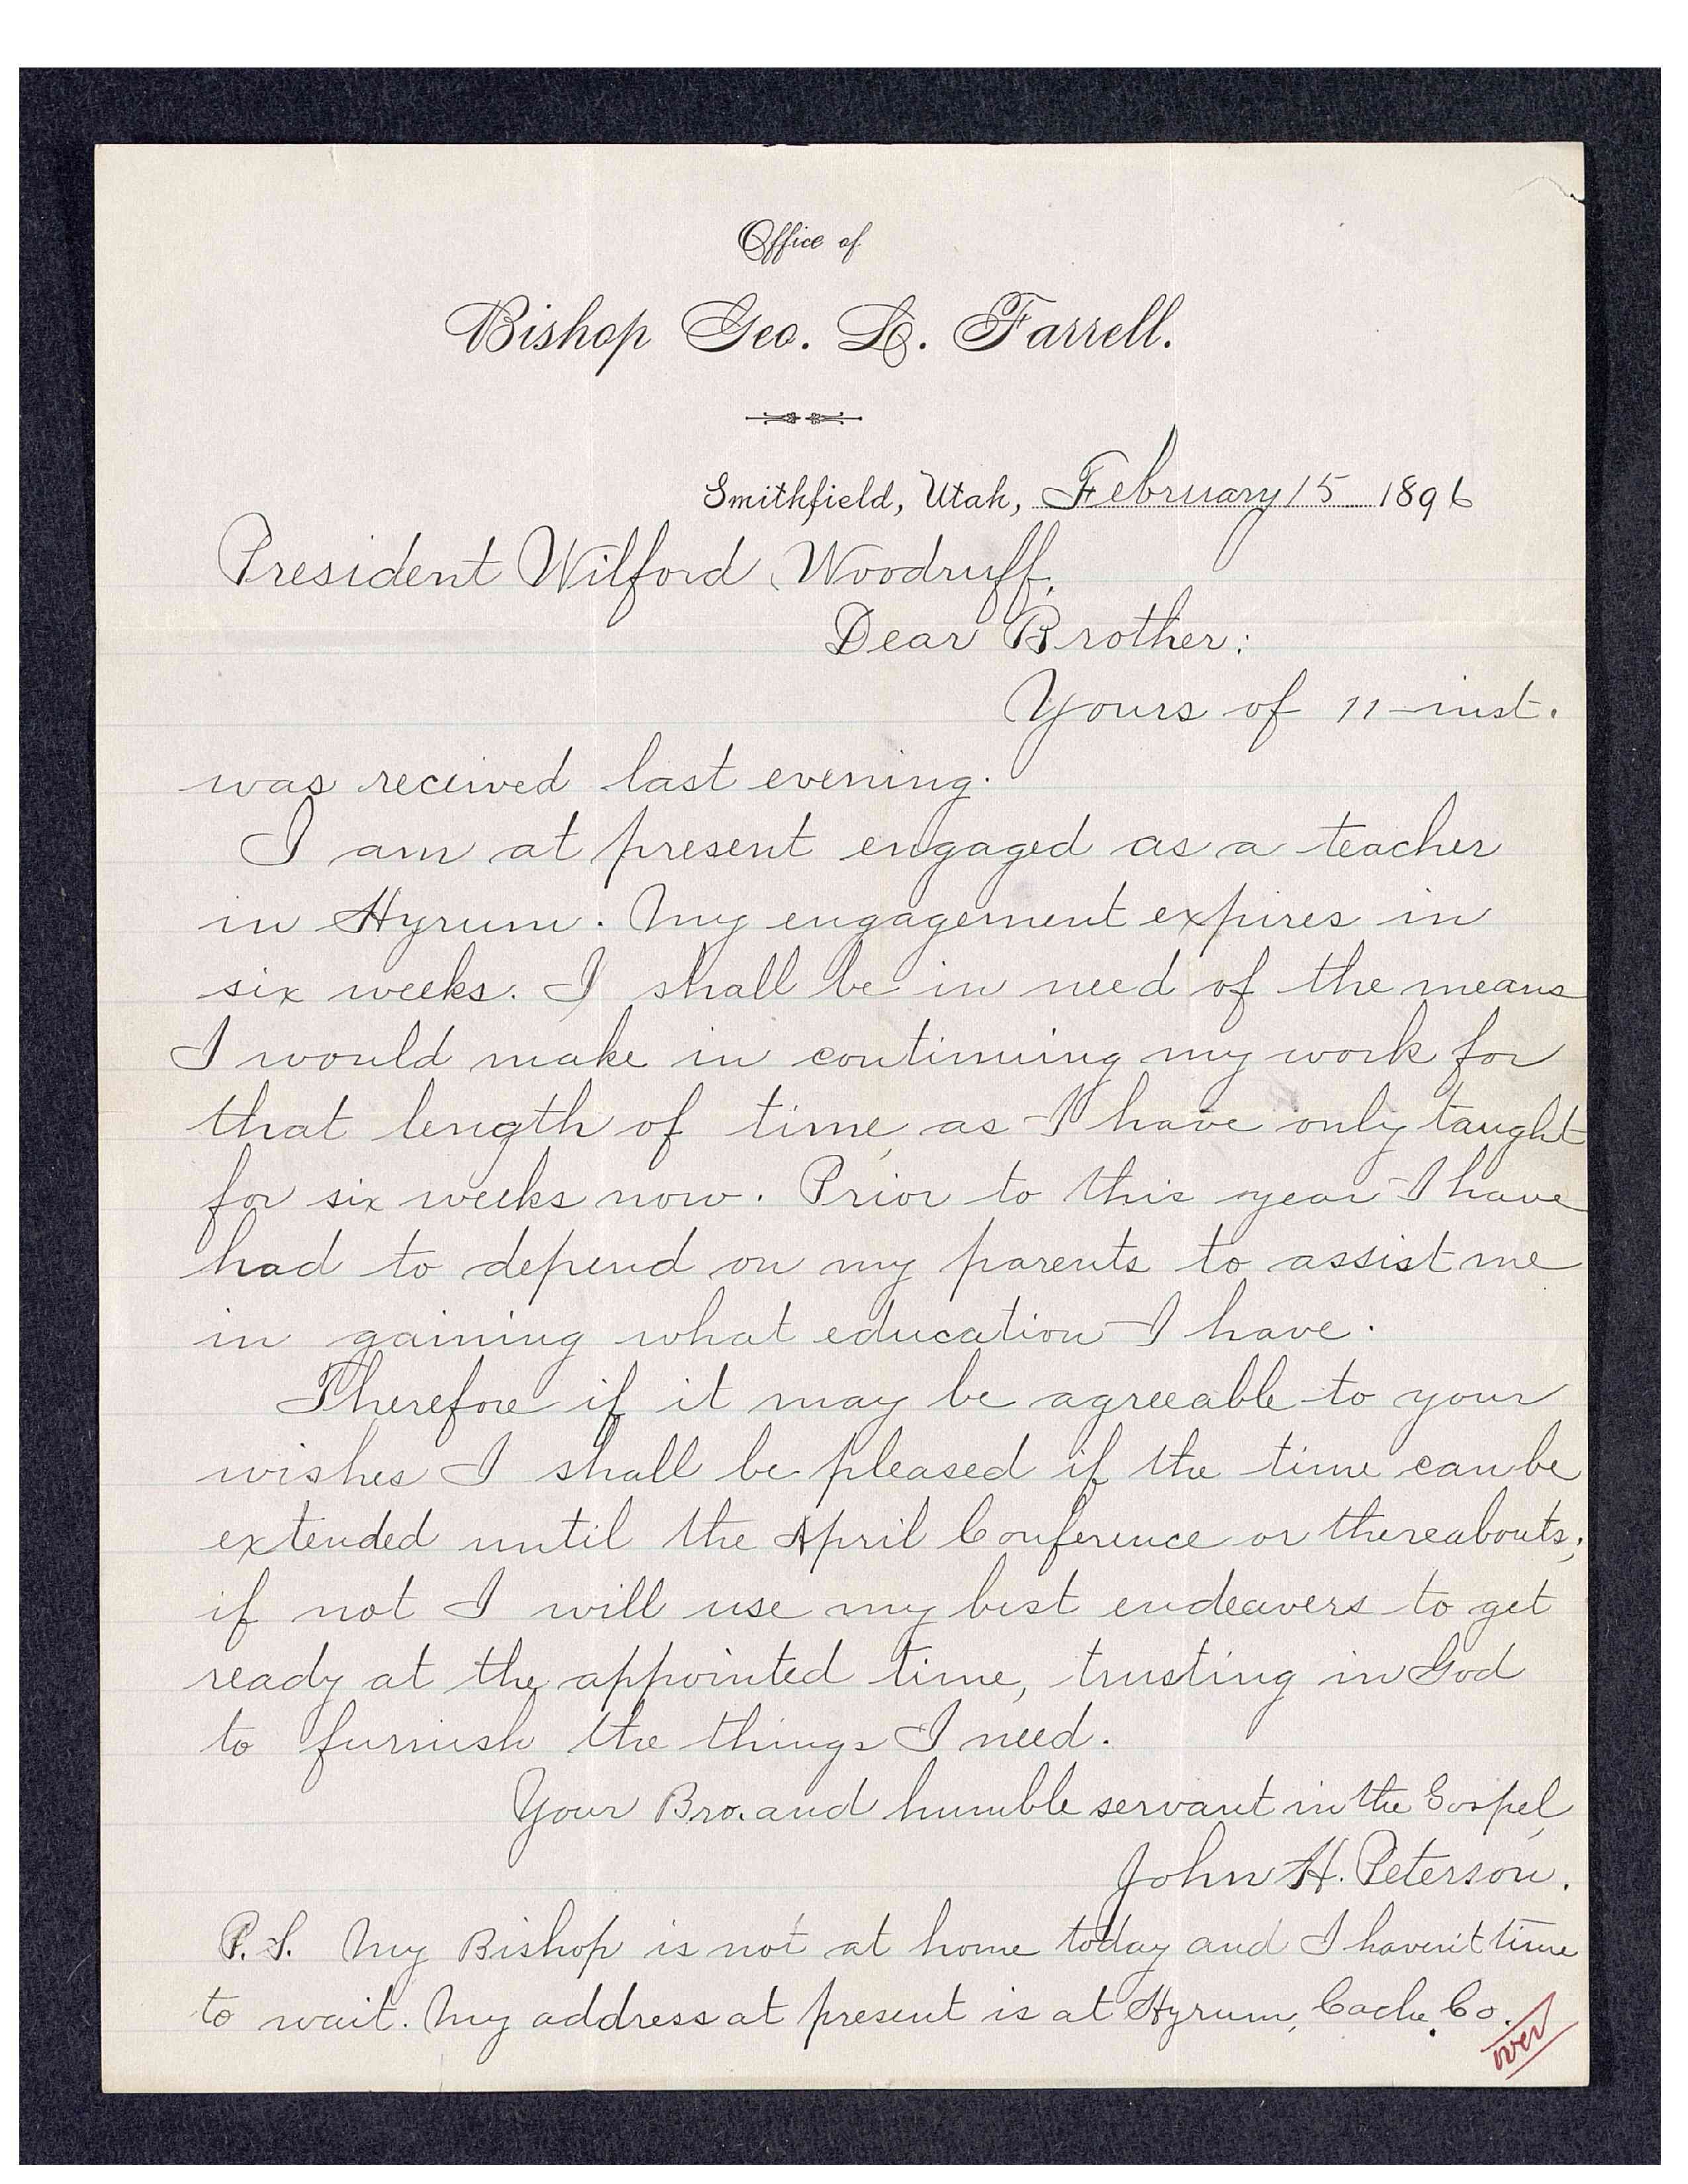 Office of
Bishop Geo. L. Farrell.
Smithfield, Utah, February 15 1896
President Wilford Woodruff,
Dear Brother:
Yours of 11-inst.
was received last evening.
I am at present engaged as a teacher
in Hyrum. My engagement expires in
six weeks. I shall be in need of the means
I would make in continuing my work for
that length of time, as I have only taught
for six weeks now. Prior to this year I have
had to depend on my parents to assist me
in gaining what education I have.
Therefore if it may be agreeable to your
wishes I shall be pleased if the time can be
extended until the April Conference or thereabouts;
if not I will use my best endeavers to get
ready at the appointed time, trusting in God
to furnish the things I need.
Your Bro. and humble servant in the Gospel,
John H. Peterson.
P.S. My Bishop is not at home today and I haven't time
to wait. My address at present is at Hyrum, Cache. Co.
over